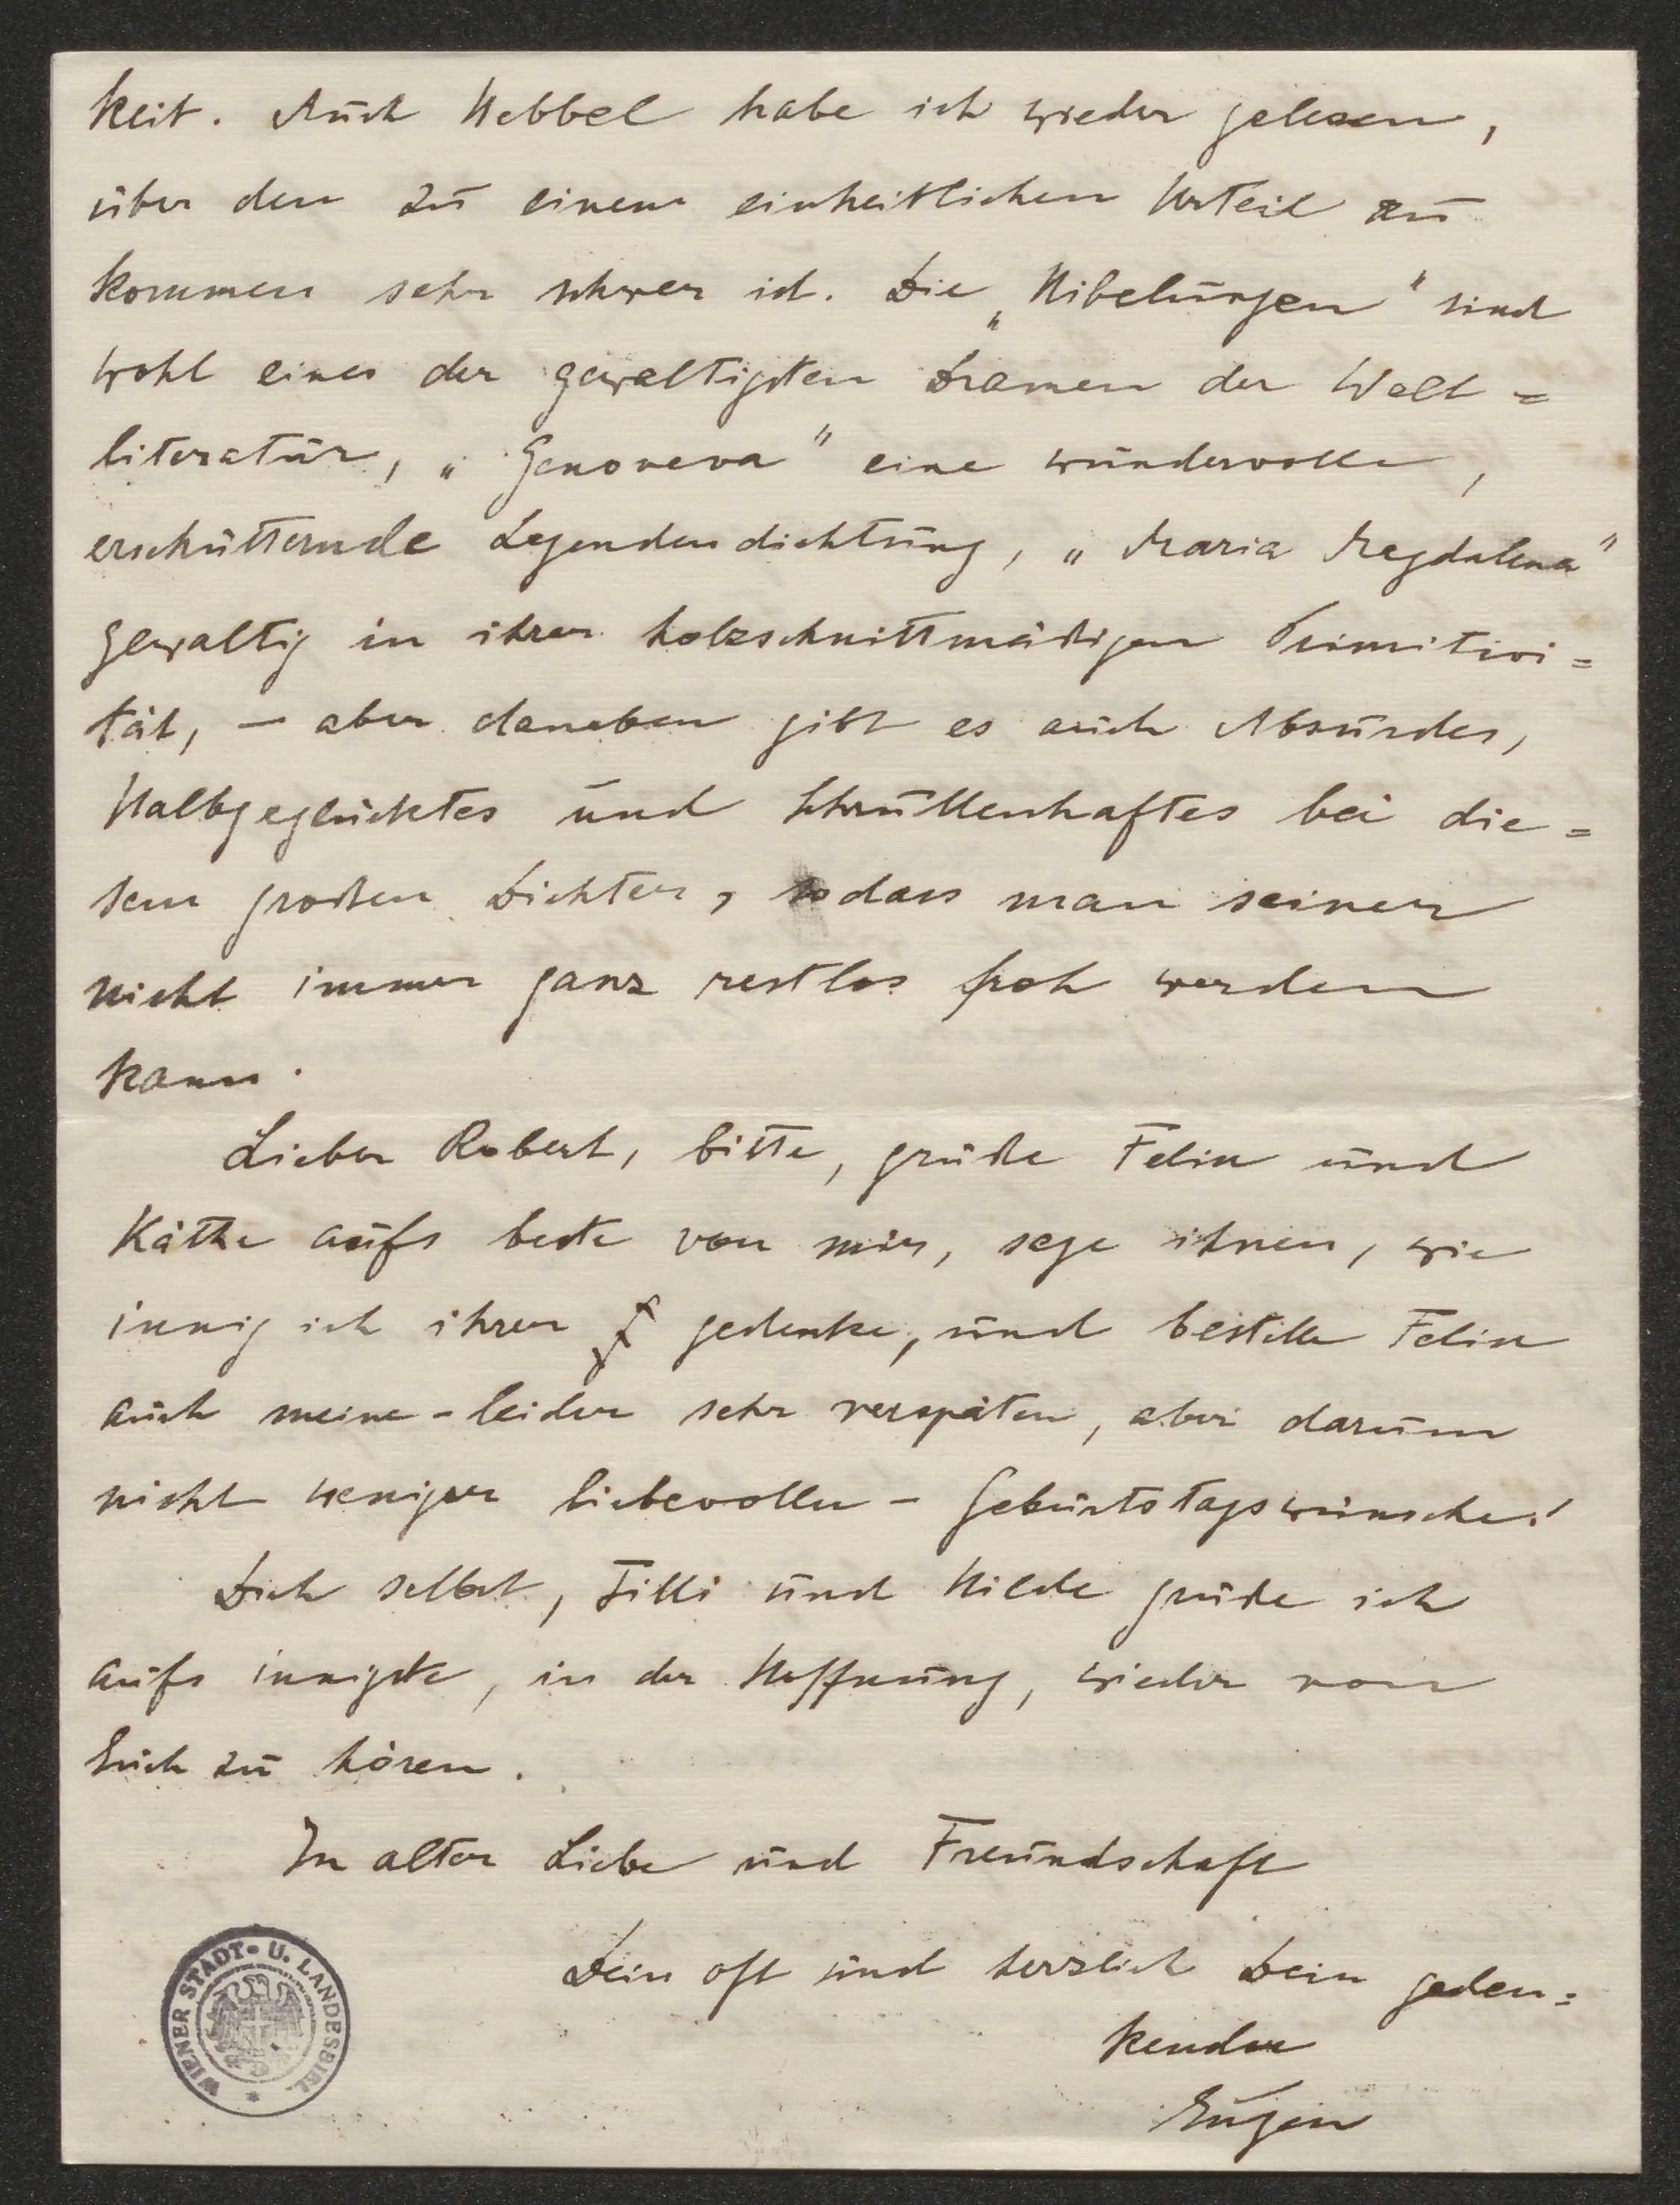 keit. Auch Hebbel habe ich wieder gelesen,
über den zu einem einheitlichen Urteil zu
kommen sehr schwer ist. Die „Nibelungen" sind
wohl eines der gewaltigsten Dramen der Welt=
literatur, „Genoveva" eine wundervolle,
erschütternde Legendendichtung, „Maria Magdalena"
gewaltig in ihrer holzschnittmäßigen Primitivi=
tät, – aber daneben gibt es auch Absurdes,
Halbgeglücktes und Schrullenhaftes bei die=
sem großen Dichter, sodass man seiner
nicht immer ganz restlos froh werden
kann.
Lieber Robert, bitte, grüße Felix und
Käthe aufs beste von mir, sage ihnen, wie
innig ich ihrer gedenke, und bestelle Felix
auch meine – leider sehr verspäten, aber darum
nicht weniger liebevollen – Geburtstagswünsche!
Dich selbst, Tilli und Hilde grüße ich
aufs innigste, in der Hoffnung, wieder von
Euch zu hören.
In alter Liebe und Freundschaft
Dein oft und herzlich Dein geden=
kender
Eugen
WIENER STADT- U. LANDESBIBL. *